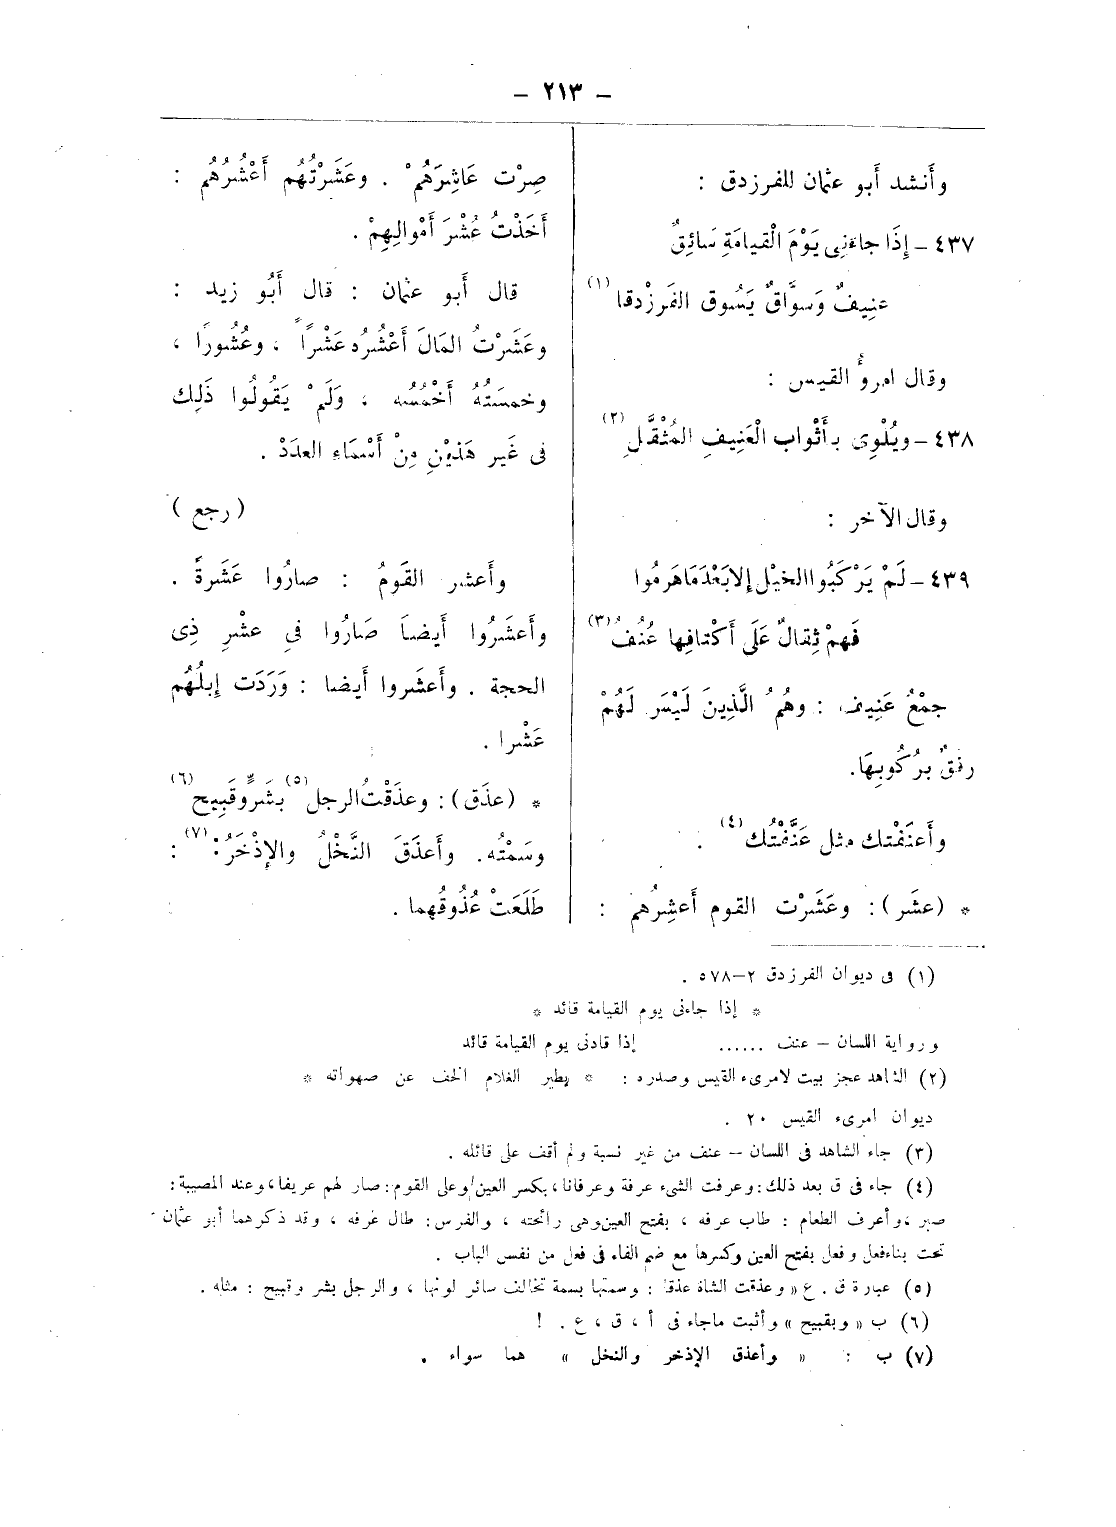 – ٢١٣ –
وأَنشد أَبو عثمان للفرزدق :
٤٣٧ – إِذَا جاءَنِى يَوْمَ الْقيامَةِ سَائِقٌ
عنِيفٌ وَسوَّاقٌ يَسُوق الفَرزْدقا (١)
وقال امرؤُ القيس :
٤٣٨ – ويُلْوِى بأَثْواب الْعَنِيفِ المُثَقَّلِ (٢)
وقال الآخر :
٤٣٩ – لَمْ يَرْكَبُوا الخيْل إِلا بَعْدَ مَا هَرِمُوا
فَهمْ ثِقالٌ عَلَى أَكْتافِها عُنُفُ (٣)
جمْعُ عَنِيف : وهُمُ الَّذِينَ لَيْسَ لَهُمْ
رفقٌ برُكُوبِهَا.
وأَعنَفْتك مثل عَنَّفْتُك (٤) .
* (عشَر) : وعَشَرْت القوم أَعشِرُهم :
صِرْت عَاشِرَهُمْ . وعَشَرْتُهُم أَعْشُرُهُم :
أَخَذْتُ عُشْرَ أَمْوالِهِمْ .
قال أَبو عثمان : قال أَبُو زيد :
وعَشَرْتُ المَالَ أَعْشُره عَشْرًا ، وعُشُورًا ،
وخمسَتُهُ أَخْمُسُه ، وَلَمْ يَقُولُوا ذَلِك
فى غَير هَذيْنِ مِنْ أَسْمَاءِ العدَدْ .
( رجع )
وأَعشر القَومُ : صارُوا عَشَرةً .
وأَعشَرُوا أَيضاً صَارُوا فى عشْرِ ذِى
الحجة . وأَعشَروا أَيضا : وَرَدَت إِبلُهُم
عَشْرا .
* (عذَق) : وعذَقْتُ الرجل (٥) بشَرٍّ وقَبِيح (٦)
وسَمْتُه. وأَعذَقَ النَّخْلُ والإِذْخَرُ (٧) :
طَلَعَتْ عُذُوقُهما .
(١) فى ديوان الفرزدق ٢–٥٧٨ .
* إذا جاءنى يوم القيامة قائد *
ورواية اللسان – عنف ...... إذا قادنى يوم القيامة قائد
(٢) الشاهد عجز بيت لامرىء القيس وصدره : * يطير الغلام الخف عن صهواته *
ديوان امرىء القيس ٢٠ .
(٣) جاء الشاهد فى اللسان – عنف من غير نسبة ولم أقف على قائله .
(٤) جاء فى ق بعد ذلك : وعرفت الشىء عرفة وعرفانا ، بكسر العين / وعلى القوم : صار لهم عريفا ، وعند المصيبة :
صبر ، وأعرف الطعام : طاب عرفه ، بفتح العين وهى رائحته ، والفرس : طال عرفه ، وقد ذكرهما أبو عثمان
تحت بناء فعل وفعل بفتح العين وكسرها مع ضم الفاء فى فعل من نفس الباب .
(٥) عبارة ق . ع « وعذقت الشاة عذقا : وسمتها بسمة تخالف سائر لونها ، والرجل بشر وقبيح : مثله .
(٦) ب « وبقبيح » وأثبت ماجاء فى أ ، ق ، ع . !
(٧) ب : « وأعذق الإذخر والنخل » هما سواء .